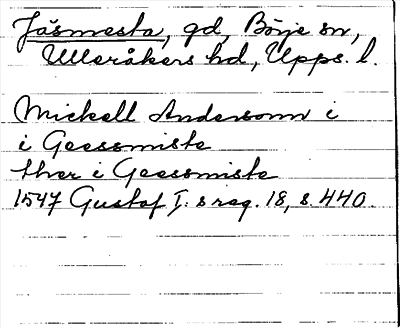 Jäsmesta, gd, Börje sn,
Ulleråkers hd, Upps. l.
Mickell Andersonn i
i Geessmiste
Iher i Geessmiste
1547 Gustaf I:s reg. 18, s. 440.